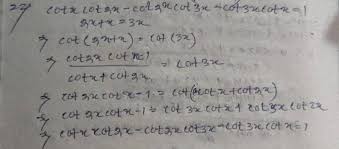 22) cotx cot2x - cot2x cot3x - cot3x cotx = 1
2x+x = 3x
⇒ cot (2x+x) = cot (3x)
⇒ cot2x cotx-1 / cotx + cot2x = cot3x
⇒ cot2x cotx - 1 = cot3x(cotx + cot2x)
⇒ cot2x cotx - 1 = cot3x cotx + cot3x cot2x
⇒ cotx cot2x - cot2x cot3x - cot3x cotx = 1